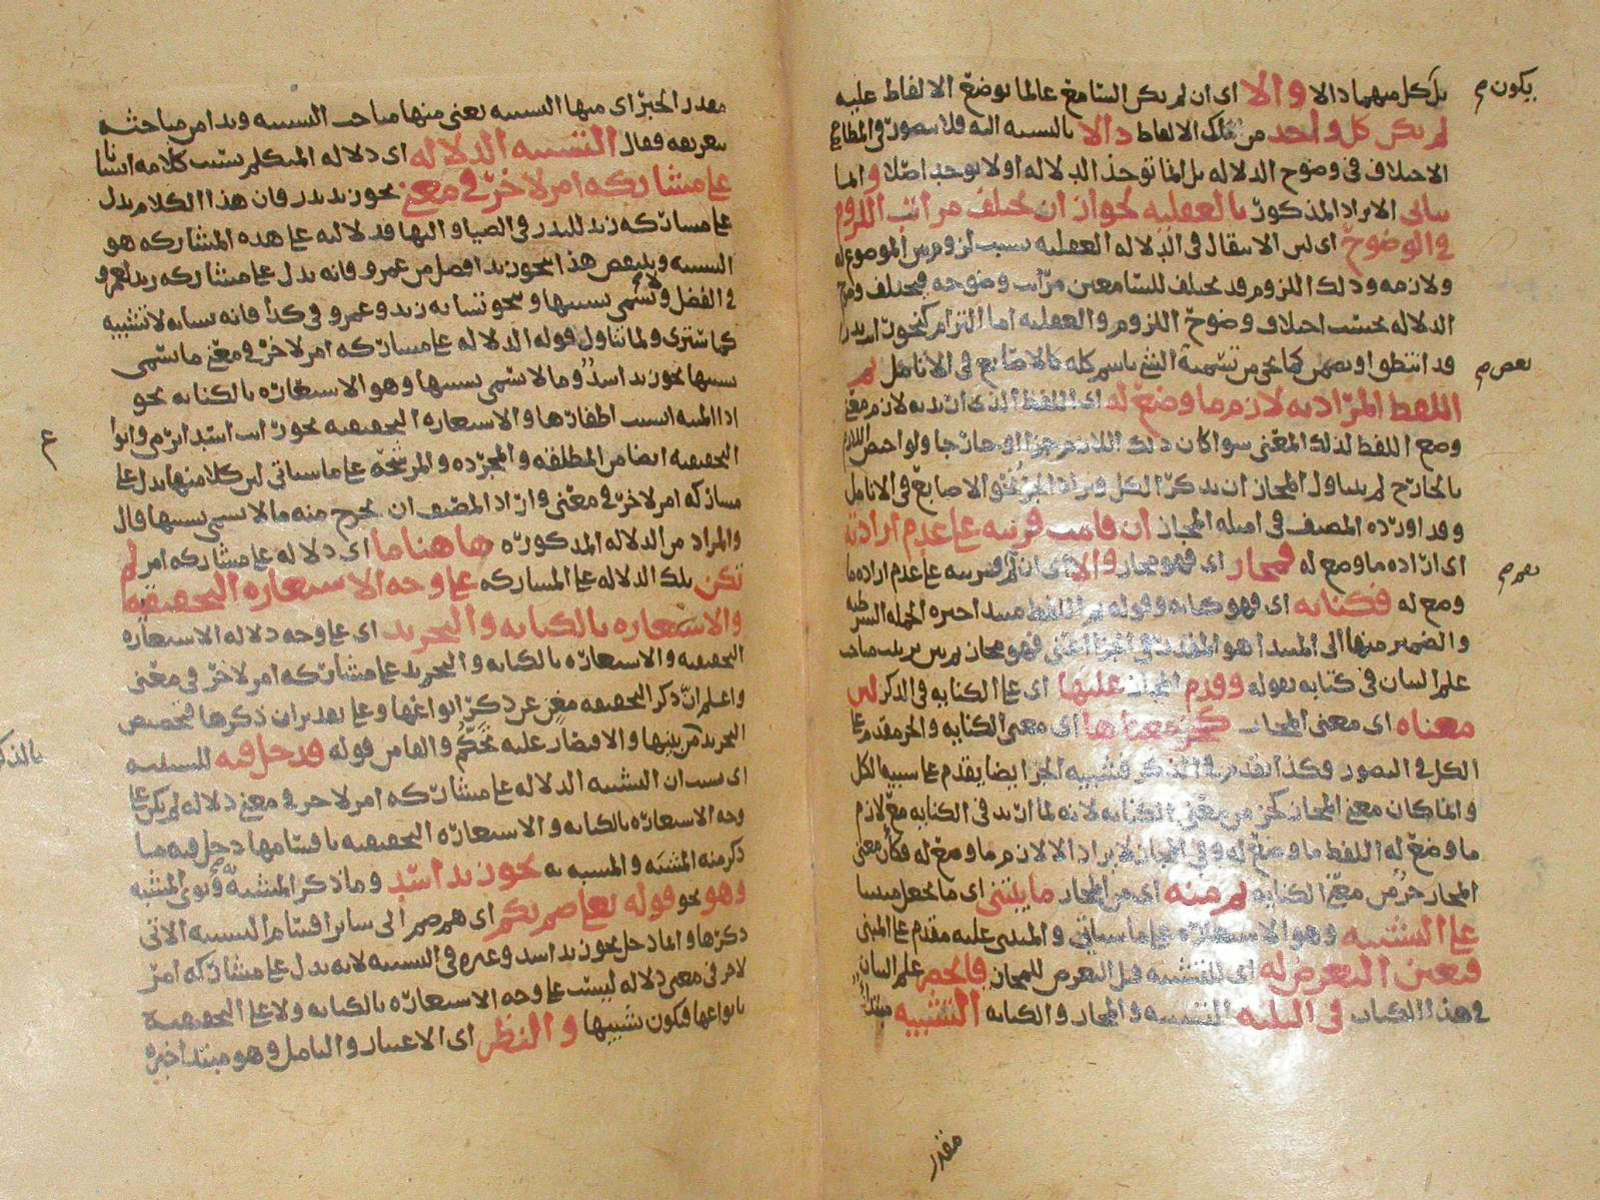 بل كل منهما دالا والا اى ان لم يكن السامع عالما بوضع الالفاظ عليه
يكون م
لم يكن كل واحد من تلك الالفاظ دالا بالنسبه اليه فلا يتصور فى المطابع
الاختلاف فى وضوح الدلاله بل انما توجد الدلاله او لا توجد اصلا وانما
يتاتى الايراد المذكور بالعقليه لجواز ان تختلف مراتب اللزوم
فى الوضوح اى لان الانتقال فى الدلاله العقليه بسبب لزوم بين الموضوع له
ولازمه وذلك اللزوم قد يختلف للسامعين مراتب وضوحه فيختلف وضوح
الدلاله بحسب اختلاف وضوح اللزوم والعقليه اما التزام كنحو
قد انتطوا او تضمن كما يجى من تسمية الشئ باسم كله كالاصابع فى الانامل ثم
بعض م
اللفظ المراد به لازم ما وضع له اى اللفظ الذى اريد به لازم معنى
وضع اللفظ لذلك المعنى سواء كان ذلك اللازم جزءا او خارجا ولو اختص اللازم
بالخارج لم يتناول المجاز ان يذكر الكل ويراد الجزء نحو الاصابع فى الانامل
وقد اورده المصنف فى امثله المجاز ان قامت قرينه على عدم ارادته
اى اراده ما وضع له فمجاز اى فهو مجاز والا اى ان لم تقم قرينه على عدم اراده ما
وضع له فكنايه اى فهو كنايه وقوله ثم اللفظ مبتدا خبره الجمله الشرطيه
والضمير منها الى المبتدا هو المقدر فى الجزا اعنى فهو مجاز
علم البيان فى كتابه بقوله وقدم المجاز عليها اى على الكنايه فى الذكر لان
معناه اى معنى المجاز كجزء معناها اى معنى الكنايه والجزء مقدم على
الكل فى التصور فكذا يقدم فى الذكر فشبيه الجزء ايضا يقدم على شبيه الكل
وانما كان معنى المجاز كجزء من معنى الكنايه لانه لما اريد فى الكنايه مع لازم
ما وضع له اللفظ ما وضع له وفى المجاز لا يراد الا لازم ما وضع له فكان معنى
المجاز جزء من معنى الكنايه ثم منه اى من المجاز ما يبتنى اى ما يجعل مبنيا
على التشبيه وهو الاستعاره على ما سياتى والمبتنى عليه مقدم على المبنى
فتعين التعرض له اى للتشبيه قبل التعرض للمجاز فانحصر علم البيان
فى هذا الكتاب فى الثلثه التشبيه والمجاز والكنايه التشبيه مبتدا
مقدر
مقدر الخبر اى منها التشبيه يعنى منها مباحث التشبيه وبدا من مباحثه
بتعريفه فقال التشبيه الدلاله اى دلاله المتكلم بسبب كلامه انشا
على مشاركه امر لاخر فى معنى نحو زيد بدر فان هذا الكلام يدل
على مشاركه زيد للبدر فى الضيا والبها فدلالته على هذه المشاركه هو
التشبيه وينتقض هذا بنحو زيد افضل من عمرو فانه يدل على مشاركه زيد لعمرو
فى الفضل ولا يسمى تشبيها ونحو تشابه زيد وعمرو فى كذا فانه تشابه لا تشبيه
كما سترى ولما تناول قوله الدلاله على مشاركه امر لاخر فى معنى ما يسمى
تشبيها نحو زيد اسد وما لا يسمى تشبيها وهو الاستعاره بالكنايه نحو
اذا المنيه انشبت اظفارها والاستعاره التحقيقيه نحو رايت اسدا يرمى وانوا
ع
التحقيقيه ايضا من المطلقه والمجرده والمرشحه على ما سياتى لان كلا منها يدل على
مشاركه امر لاخر فى معنى واراد المصنف ان يخرج منه ما لا يسمى تشبيها قال
والمراد من الدلاله المذكوره هاهنا ما اى دلاله على مشاركه امر لم
تكن تلك الدلاله على المشاركه على وجه الاستعاره التحقيقيه
والاستعاره بالكنايه والتجريد اى على وجه دلاله الاستعاره
التحقيقيه والاستعاره بالكنايه والتجريد على مشاركه امر لاخر فى معنى
واعلم ان ذكر التحقيقيه مغن عن ذكر انواعها وعلى تقدير ان ذكرها فتخصيص
التجريد من بينها والاقتصار عليه تحكم والفا من قوله فدخل فيه للسببيه
بالذكر
اى بسبب ان التشبيه الدلاله على مشاركه امر لاخر فى معنى دلاله لم يكن على
وجه الاستعاره بالكنايه والاستعاره التحقيقيه باقسامها دخل فيه ما
ذكر منه المشبه والمشبه به نحو زيد اسد وما ذكر المشبه به ونوى المشبه
وهو نحو قوله تعالى صم بكم اى هم صم الى ساير اقسام التشبيه الاتى
ذكرها وانما دخل نحو زيد اسد وغيره فى التشبيه لانه يدل على مشاركه امر
لاخر فى معنى دلاله ليست على وجه الاستعاره بالكنايه ولا على التحقيقيه
بانواعها فتكون تشبيها والنظر اى الاعتبار والتامل وهو مبتدا خبره